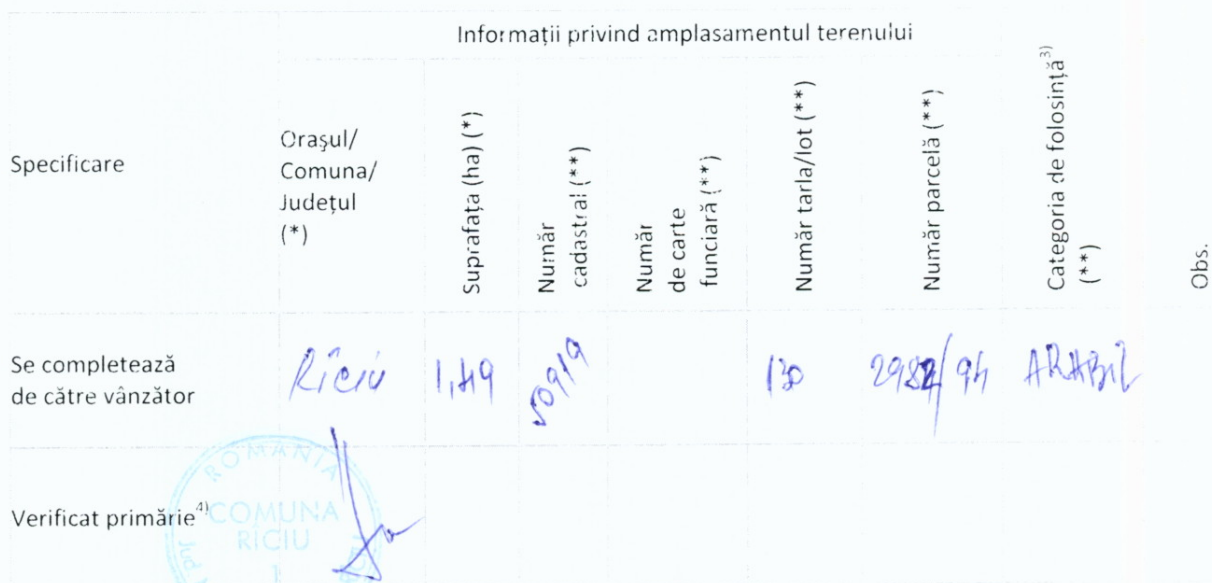 Informații privind amplasamentul terenului
Specificare
Orașul/
Comuna/
Județul
(*)
Suprafața (ha) (*)
Număr
cadastral (**)
Număr
de carte
funciară (**)
Număr tarla/lot (**)
Număr parcelă (**)
Categoria de folosință³⁾
(**)
Obs.
Se completează
de către vânzător
Rîciu
50919
130
ARABIL
Verificat primărie⁴⁾
ROMÂNIA
COMUNA
RÎCIU
1